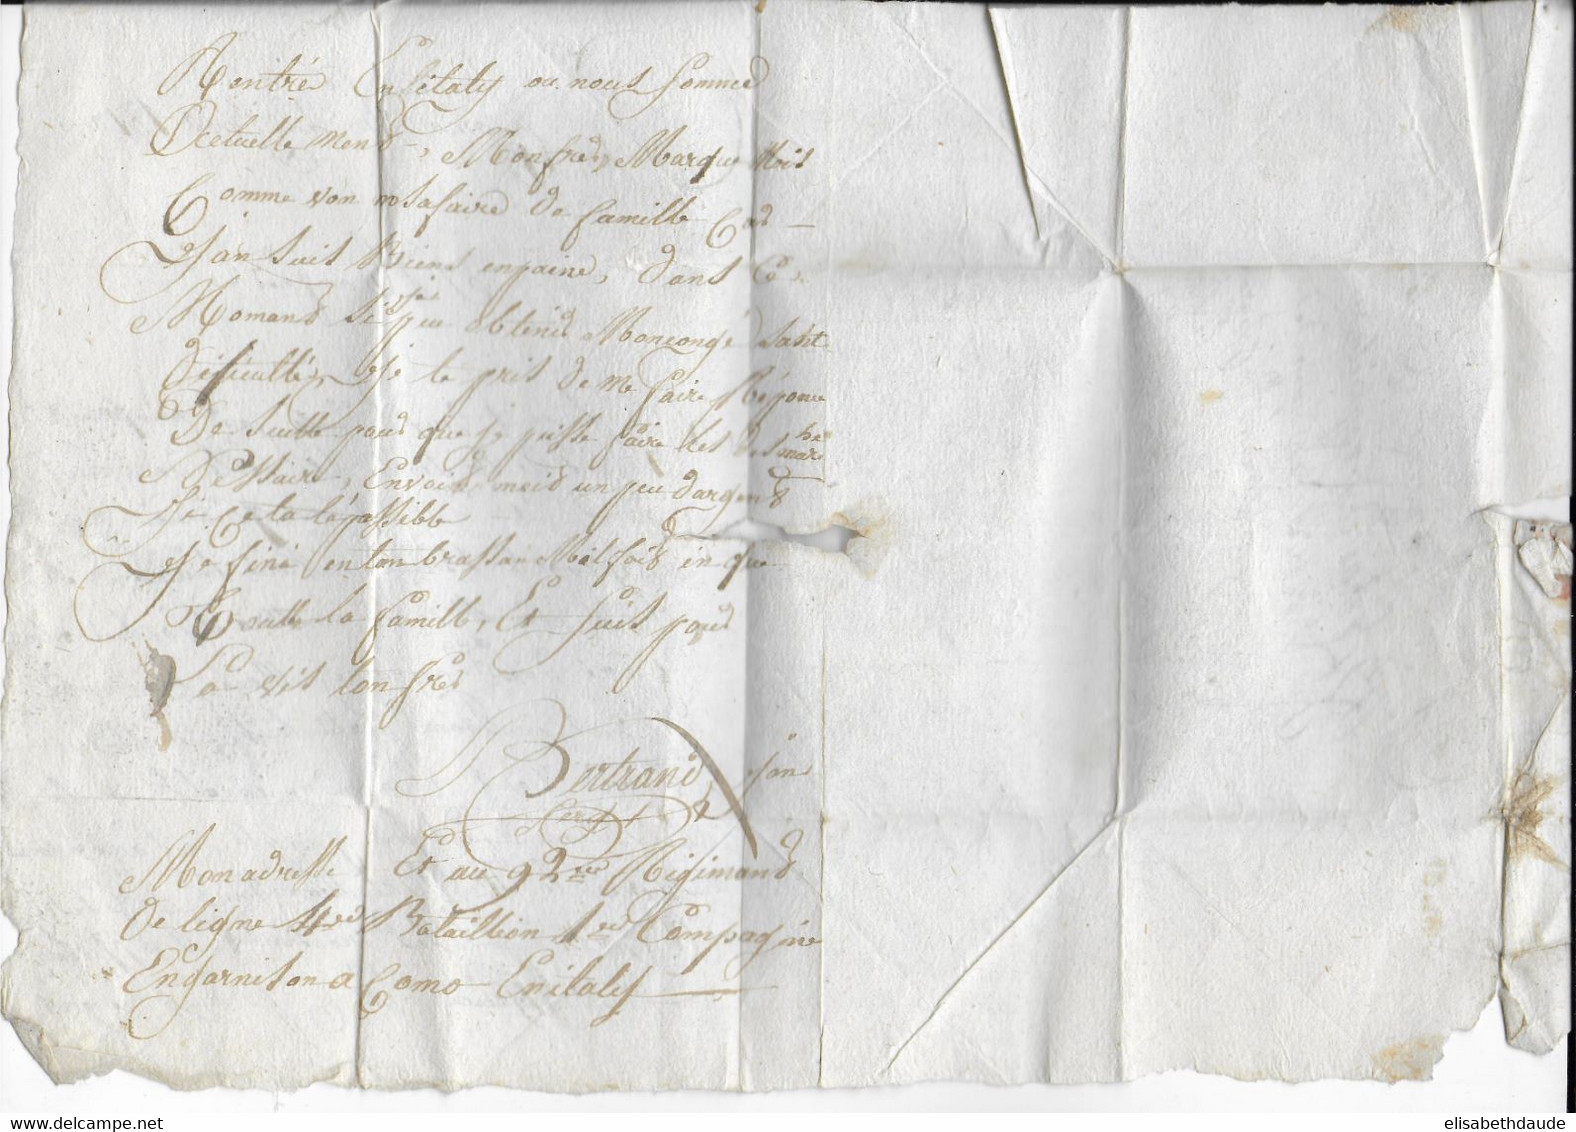 Rentré En litaly ou nous somme
Actuelle mend, Monfred, Marque Mois
Comme von nos afaire De famille Card
Jan suit Biens enpaine, Dans Ce,
Momand si je peu obtenid Moncongé sant
Dificulté, Je te pris De me faire Réponce
De suitte pour que je puisse faire les des marche
Nessaire, Envois mois un peu dargend
Si Ce ta té possible
Je fini entan brassan Mil fois in que
Toutte la famille, Et suis pour
La vis ton fred
Bertrand jan
Mon adresse Et au 92me Régimand
De ligne 4me Bataillion 1er Compagnie
Engarnison a Como Enitaly
elisabethdaude